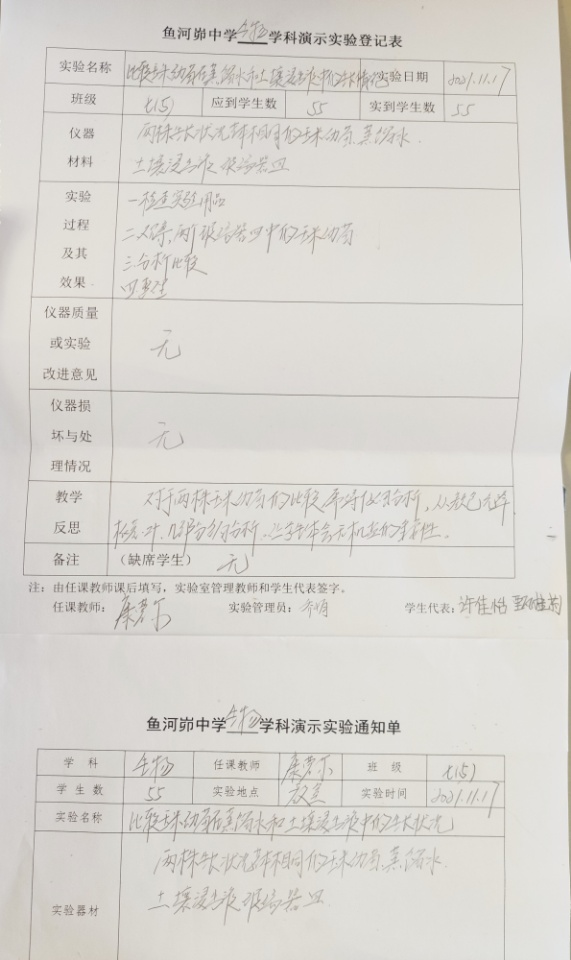 鱼河峁中学生物学科演示实验登记表
实验名称 比较玉米幼苗在蒸馏水和土壤浸出液中的生长情况 实验日期 2021.11.17
班级 七(5) 应到学生数 55 实到学生数 55
仪器 两株生长状况基本相同的玉米幼苗.蒸馏水.
材料 土壤浸出液 玻璃器皿
实验 一检查实验用品
过程 二观察,两个玻璃器皿中的玉米幼苗
及其 三分析比较
效果
仪器质量
或实验 无
改进意见
仪器损
坏与处 无
理情况
教学 对于两株玉米幼苗的比较
反思
备注 (缺席学生) 无
注：由任课教师课后填写，实验室管理教师和学生代表签字。
任课教师： 实验管理员： 学生代表: 许佳怡
鱼河峁中学生物学科演示实验通知单
学 科 生物 任课教师 班 级 七(5)
学 生 数 55 实验地点 教室 实验时间 2021.11.17
实验名称 比较玉米幼苗在蒸馏水和土壤浸出液中的生长状况
两株生长状况基本相同的玉米幼苗.蒸馏水.
实验器材 土壤浸出液 玻璃器皿.